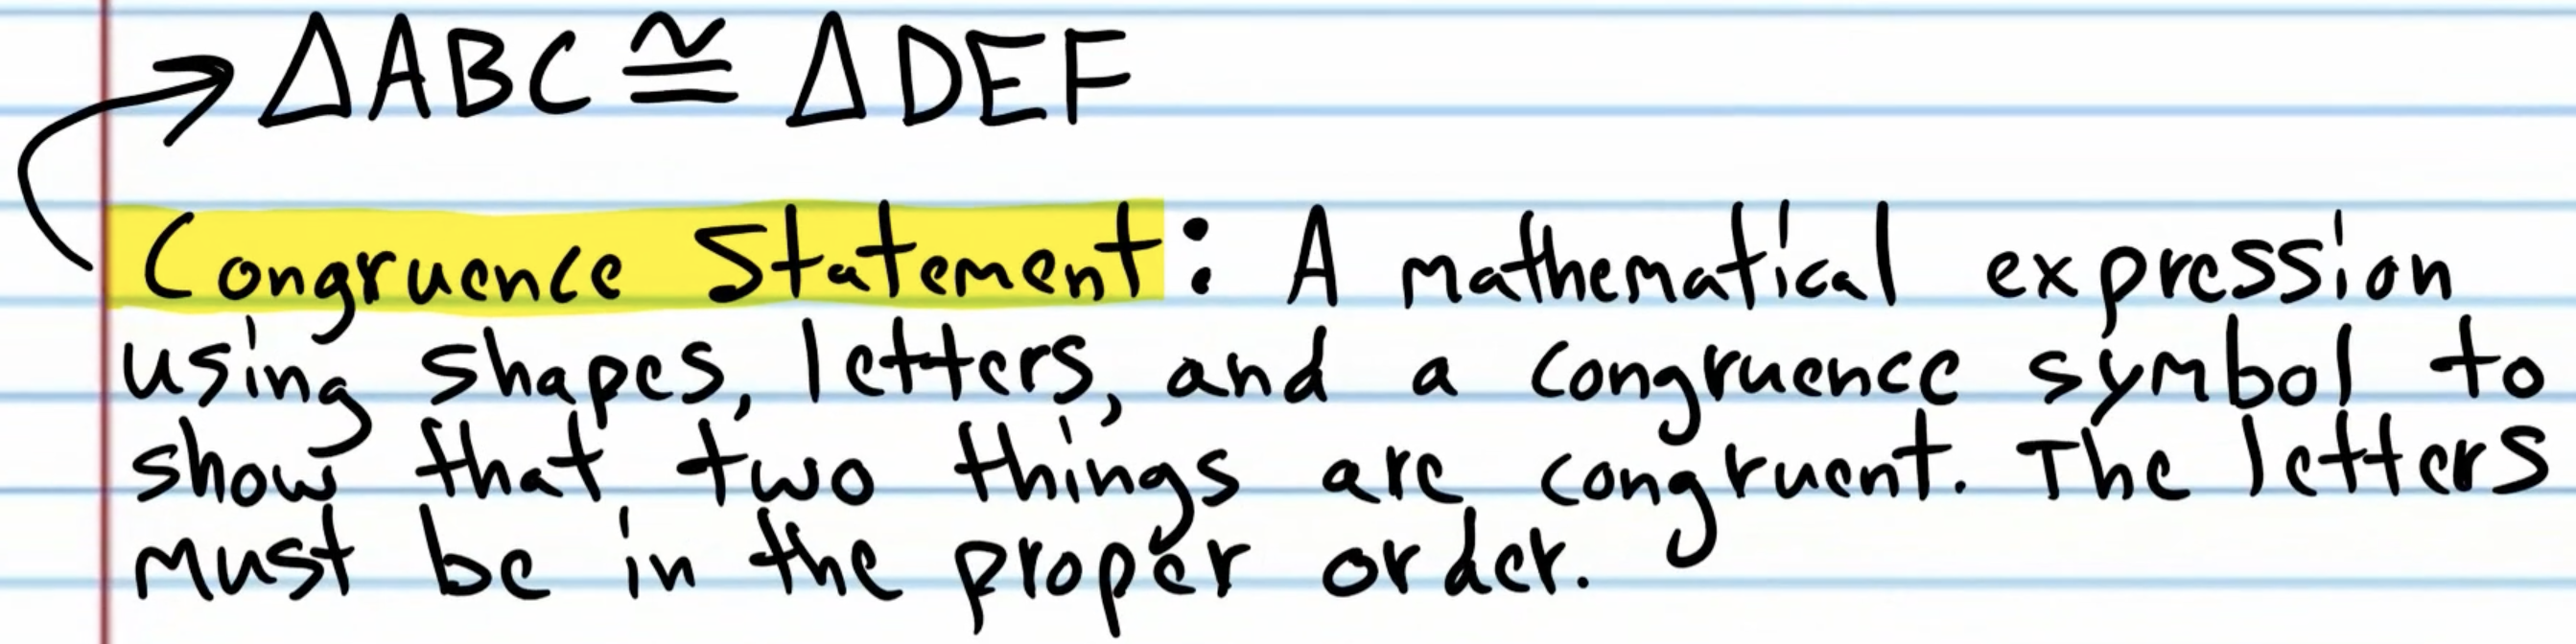 △ABC ≅ △DEF
Congruence Statement: A mathematical expression
using shapes, letters, and a congruence symbol to
show that two things are congruent. The letters
must be in the proper order.